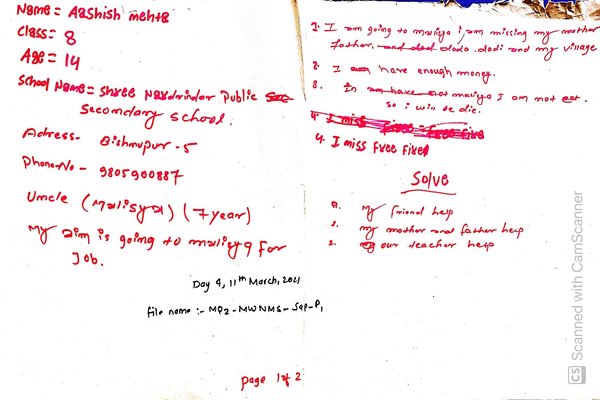 Name = Aashish mehta
Class = 8
Age = 14
School Name = Shree Nardrindar Public
Secomdary school.
Adress - Bishnupur - 5
Phone No - 9805900887
Umcle (Malisya) (7 year)
My aim is going to malisya for
Job.
Day 4, 11th March, 2021
File name :- MP2-MWNMS-Sap-P1
page 1 of 2
1. I am going to maliya i am missing my mother
father, dada dadi and my village
2. I have enough money.
3. In maliya I am not eat.
so i win be die.
4. I miss free fire
Solve
1. My friend help
2. my mother and father help
3. our teacher help
CS Scanned with CamScanner